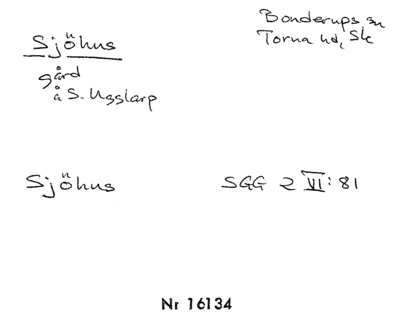 Sjöhus
gård
å S. Ugglarp
Bonderups sn
Torna hd, Sk
Sjöhus
SGG 2 VI: 81
Nr 16134